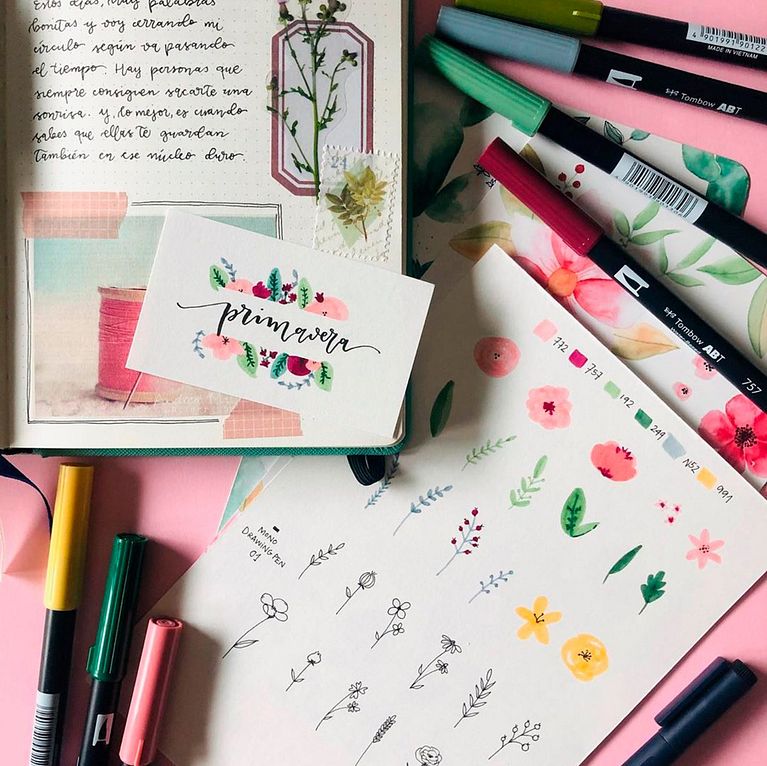 Estos días, muy palabras
bonitas y voy cerrando mi
círculo según va pasando
el tiempo. Hay personas que
siempre consiguen sacarte una
sonrisa. y, lo mejor, es cuando
sabes que ellas te guardan
también en ese núcleo duro.
21
primavera
4 901991 90122
MADE IN VIETNAM
Tombow ABT
Tombow ABT
757
772
757
192
249
N52
991
MONO
DRAWING PEN
01